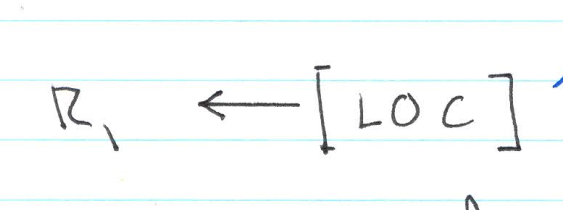 R₁ ← [LOC]